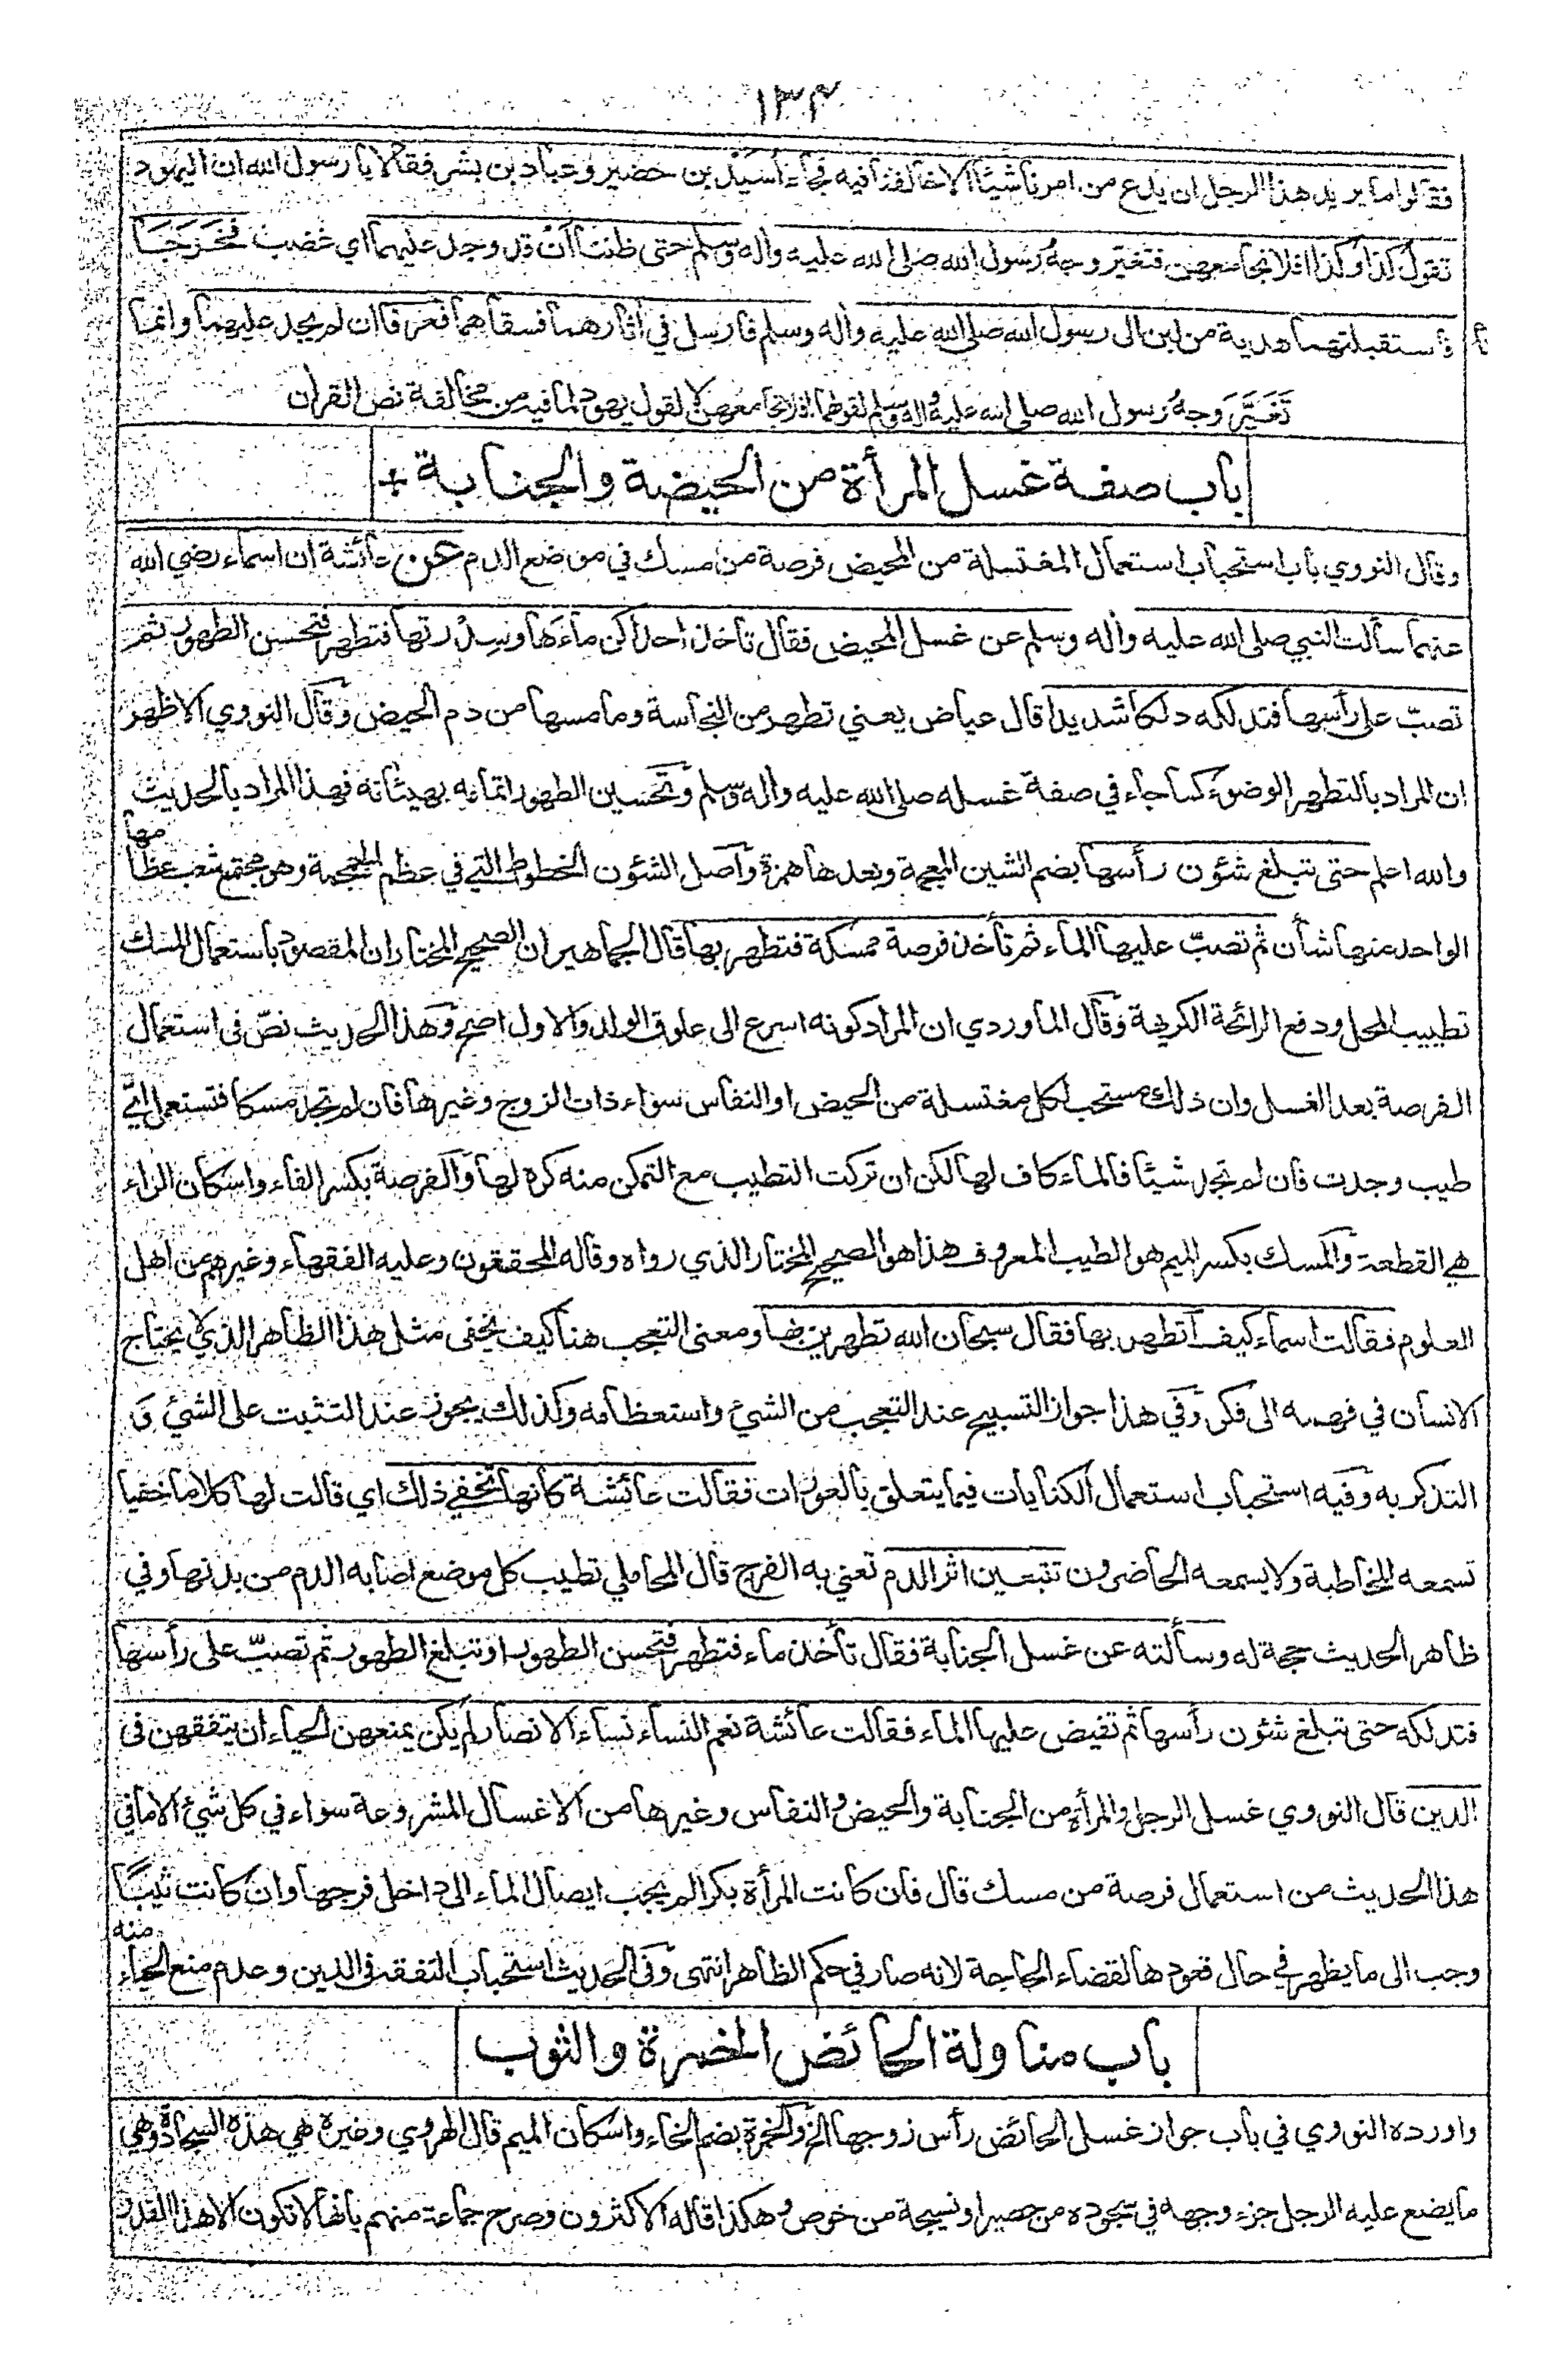 ١٣٤
فقالوا ما يريد هذا الرجل ان يدع من امرنا شيئا الا خالفنا فيه فجاء أسيد بن حضير وعباد بن بشر فقالا يا رسول الله ان اليهود
تقول كذا وكذا افلا نجامعهن فتغير وجه رسول الله صلى الله عليه واله وسلم حتى ظننا أن قد وجد عليهما اي غضب فخرجا
فاستقبلتهما هدية من لبن الى رسول الله صلى الله عليه واله وسلم فارسل في اثارهما فسقاهما فعرفا ان لم يجد عليهما وانما
تغير وجه رسول الله صلى الله عليه واله وسلم لقولهما افلا نجامعهن لا لقول يهود لما فيه من مخالفة نص القران
باب صفة غسل المرأة من الحيضة والجنابة +
وقال النووي باب استحباب استعمال المغتسلة من المحيض فرصة من مسك في موضع الدم عن عائشة ان اسماء رضي الله
عنهما سألت النبي صلى الله عليه واله وسلم عن غسل المحيض فقال تأخذ احداكن ماءها وسدرتها فتطهر فتحسن الطهور ثم
تصب على رأسها فتدلكه دلكا شديدا قال عياض يعني تطهر من النجاسة وما مسها من دم الحيض وقال النووي الاظهر
ان المراد بالتطهر الوضوء كما جاء في صفة غسله صلى الله عليه واله وسلم وتحسين الطهور اتمامه بهيئاته فهذا المراد بالحديث
والله اعلم حتى تبلغ شئون رأسها بضم الشين المعجمة وبعدها همزة واصل الشئون الخطوط التي في عظم الجمجمة وهو مجتمع شعب عظامها
الواحد منها شأن ثم تصب عليها الماء ثم تأخذ فرصة ممسكة فتطهر بها قال الجماهير ان الصحيح المختار ان المقصود باستعمال المسك
تطييب المحل ودفع الرائحة الكريهة وقال الماوردي ان المراد كونه اسرع الى علوق الولد والاول اصح وهذا الحديث نص في استعمال
الفرصة بعد الغسل وان ذلك مستحب لكل مغتسلة من الحيض او النفاس سواء ذات الزوج وغيرها فان لم تجد مسكا فتستعمل اي
طيب وجدت فان لم تجد شيئا فالماء كاف لها لكن ان تركت التطيب مع التمكن منه كره لها والفرصة بكسر الفاء واسكان الراء
هي القطعة والمسك بكسر الميم هو الطيب المعروف هذا هو الصحيح المختار الذي رواه وقاله المحققون وعليه الفقهاء وغيرهم من اهل
العلوم فقالت اسماء كيف أتطهر بها فقال سبحان الله تطهرين بها ومعنى التعجب هنا كيف يخفى مثل هذا الظاهر الذي لا يحتاج
الانسان في فهمه الى فكر وفي هذا جواز التسبيح عند التعجب من الشئ واستعظامه وكذلك يجوز عند التثبت على الشئ و
التذكر به وفيه استحباب استعمال الكنايات فيما يتعلق بالعورات فقالت عائشة كأنها تخفي ذلك اي قالت لها كلاما خفيا
تسمعه المخاطبة ولا يسمعه الحاضرون تتبعين اثر الدم تعني به الفرج قال المحاملي تطيب كل موضع اصابه الدم من بدنها وفي
ظاهر الحديث حجة له وسألته عن غسل الجنابة فقال تأخذ ماء فتطهر فتحسن الطهور او تبلغ الطهور ثم تصب على رأسها
فتدلكه حتى تبلغ شئون رأسها ثم تفيض عليها الماء فقالت عائشة نعم النساء نساء الانصار لم يكن يمنعهن الحياء ان يتفقهن في
الدين قال النووي غسل الرجل والمرأة من الجنابة والحيض والنفاس وغيرها من الاغسال المشروعة سواء في كل شئ الا ما في
هذا الحديث من استعمال فرصة من مسك قال فان كانت المرأة بكرا لم يجب ايصال الماء الى داخل فرجها وان كانت ثيبا
وجب الى ما يظهر في حال قعودها لقضاء الحاجة لانه صار في حكم الظاهر انتهى وفي الحديث استحباب التفقه في الدين وعدم منع الحياء منه
باب مناولة الحائض الخمرة والثوب
واورده النووي في باب جواز غسل الحائض رأس زوجها الخ والخمرة بضم الخاء واسكان الميم قال الهروي وغيره هي هذه السجادة وهي
ما يضع عليه الرجل جزء وجهه في سجوده من حصير او نسيجة من خوص وهكذا قاله الاكثرون وصرح جماعة منهم بانها لا تكون الا هذا القدر